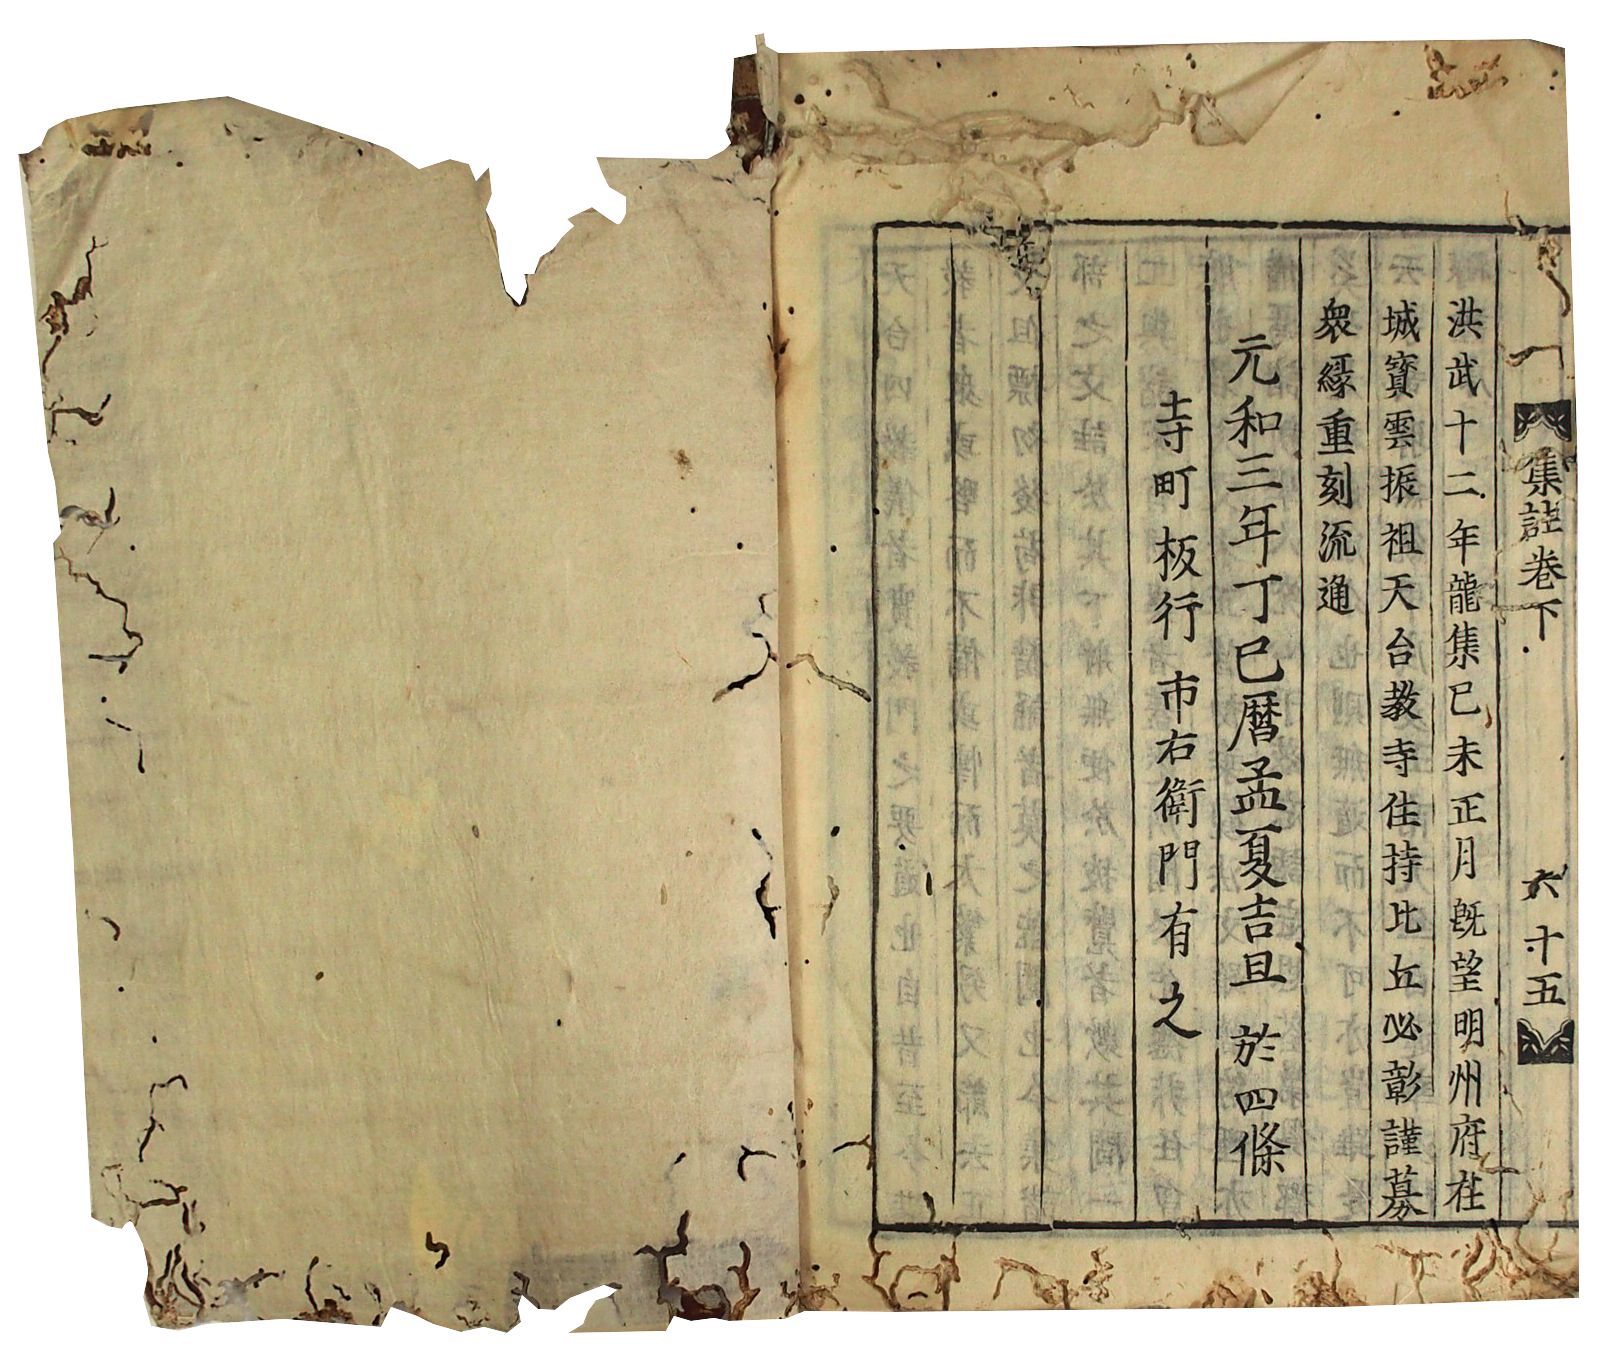 集註卷下 六十五
洪武十二年龍集己未正月既望明州府在
城寶雲振祖天台教寺住持比丘必彰謹募
衆緣重刻流通
元和三年丁巳暦孟夏吉旦 於四條
寺町板行 市右衛門有之